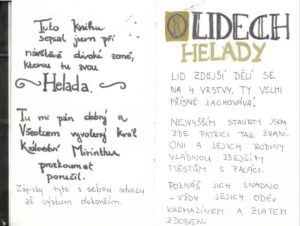 Tuto Knihu
sepsal jsem při
návštěvě divoké země,
kterou tu zvou
Helada.
Tu mi pán dobrý a
Všetcem vyvolený král
Království Mirinthus
prozkoumat
poručil.
Zápisky tyto s sebou odvezu
až výzkum dokončím.
O LIDECH
HELADY
LID ZDEJŠÍ DĚLÍ SE
NA 4 VRSTVY. TY VELMI
PŘÍSNĚ ZACHOVÁVÁ.
NEJVYŠŠÍM STAVEM JSOU
ZDE PATRICI TAK ZVANÍ.
ONI A JEJICH RODINY
VLÁDNOU ZDEJŠÍM
MĚSTŮM S PALÁCI.
POZNÁŠ JICH SNADNO
- VŽDY JEJICH ODĚV
KARMAZÍNEM A ZLATEM
ZDOBEN.